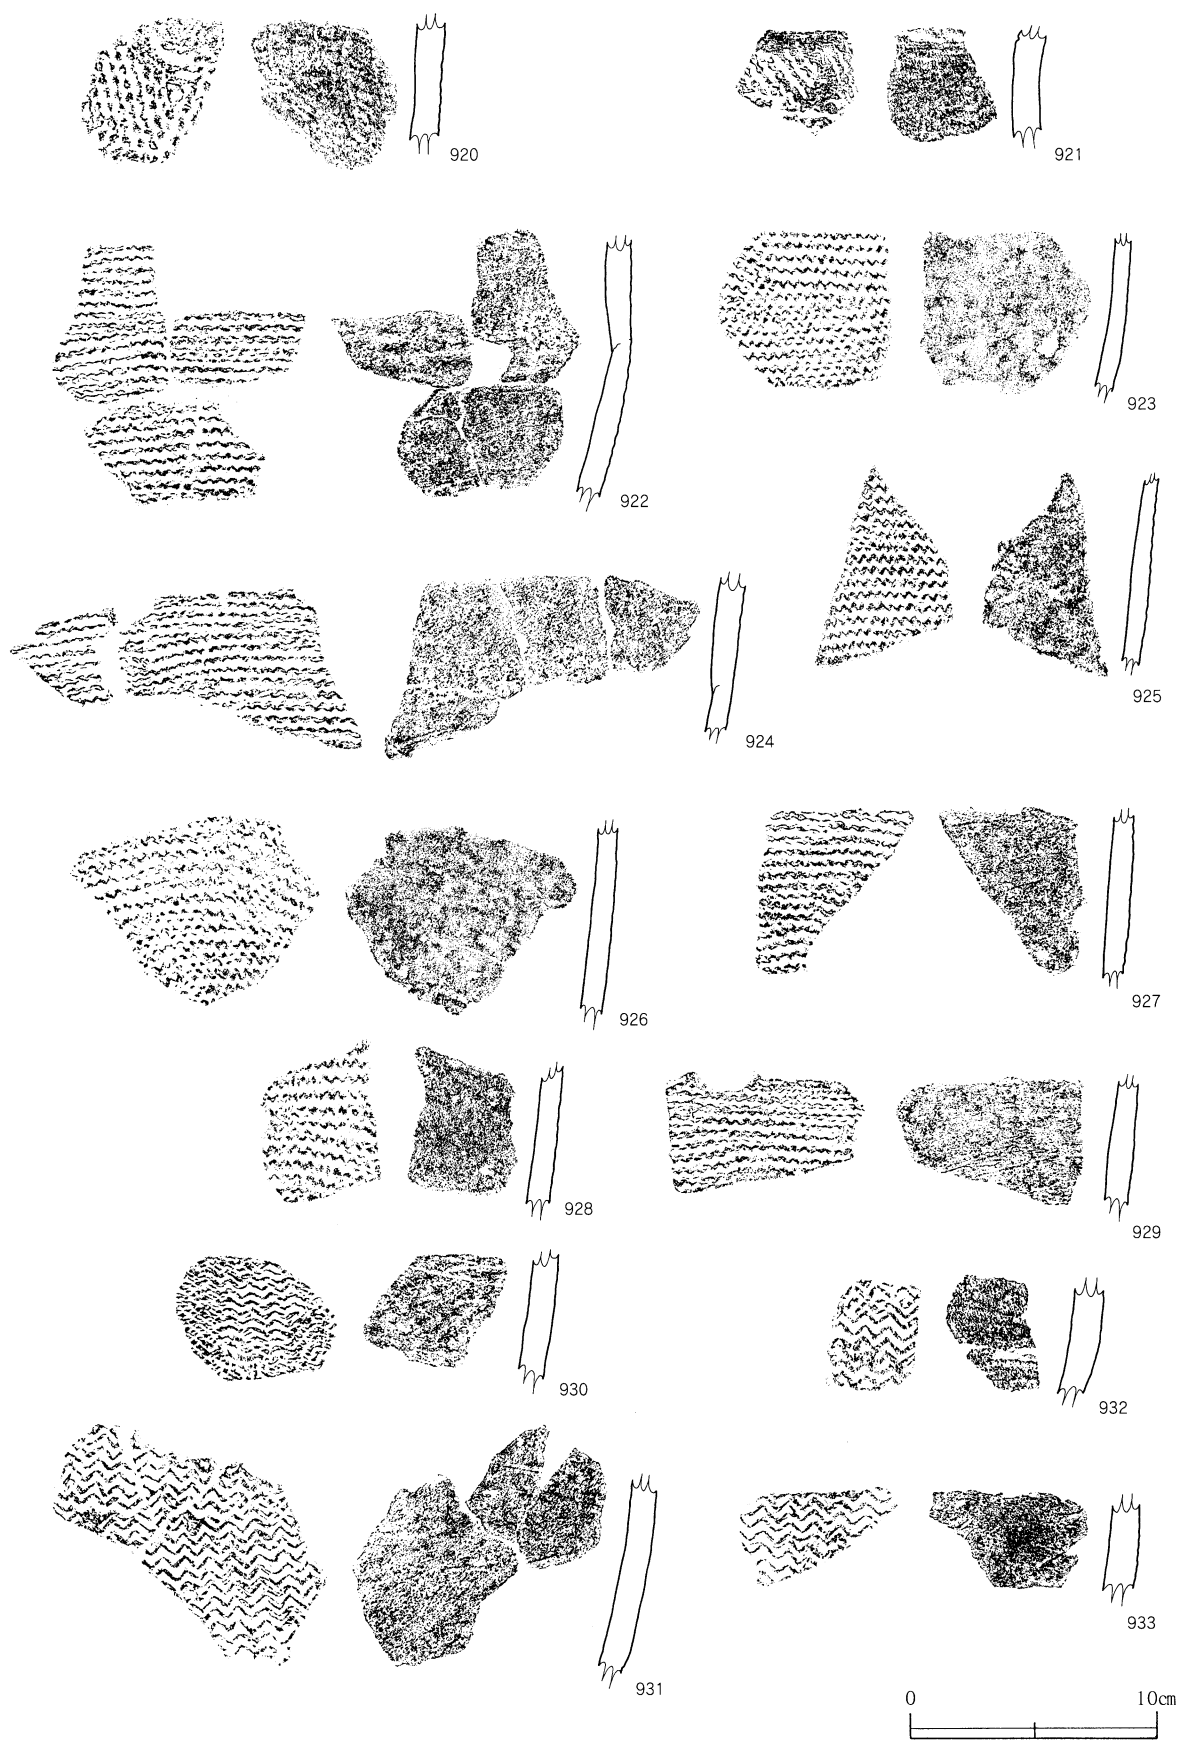 920
921
922
923
924
925
926
927
928
929
930
932
931
933
0 10cm